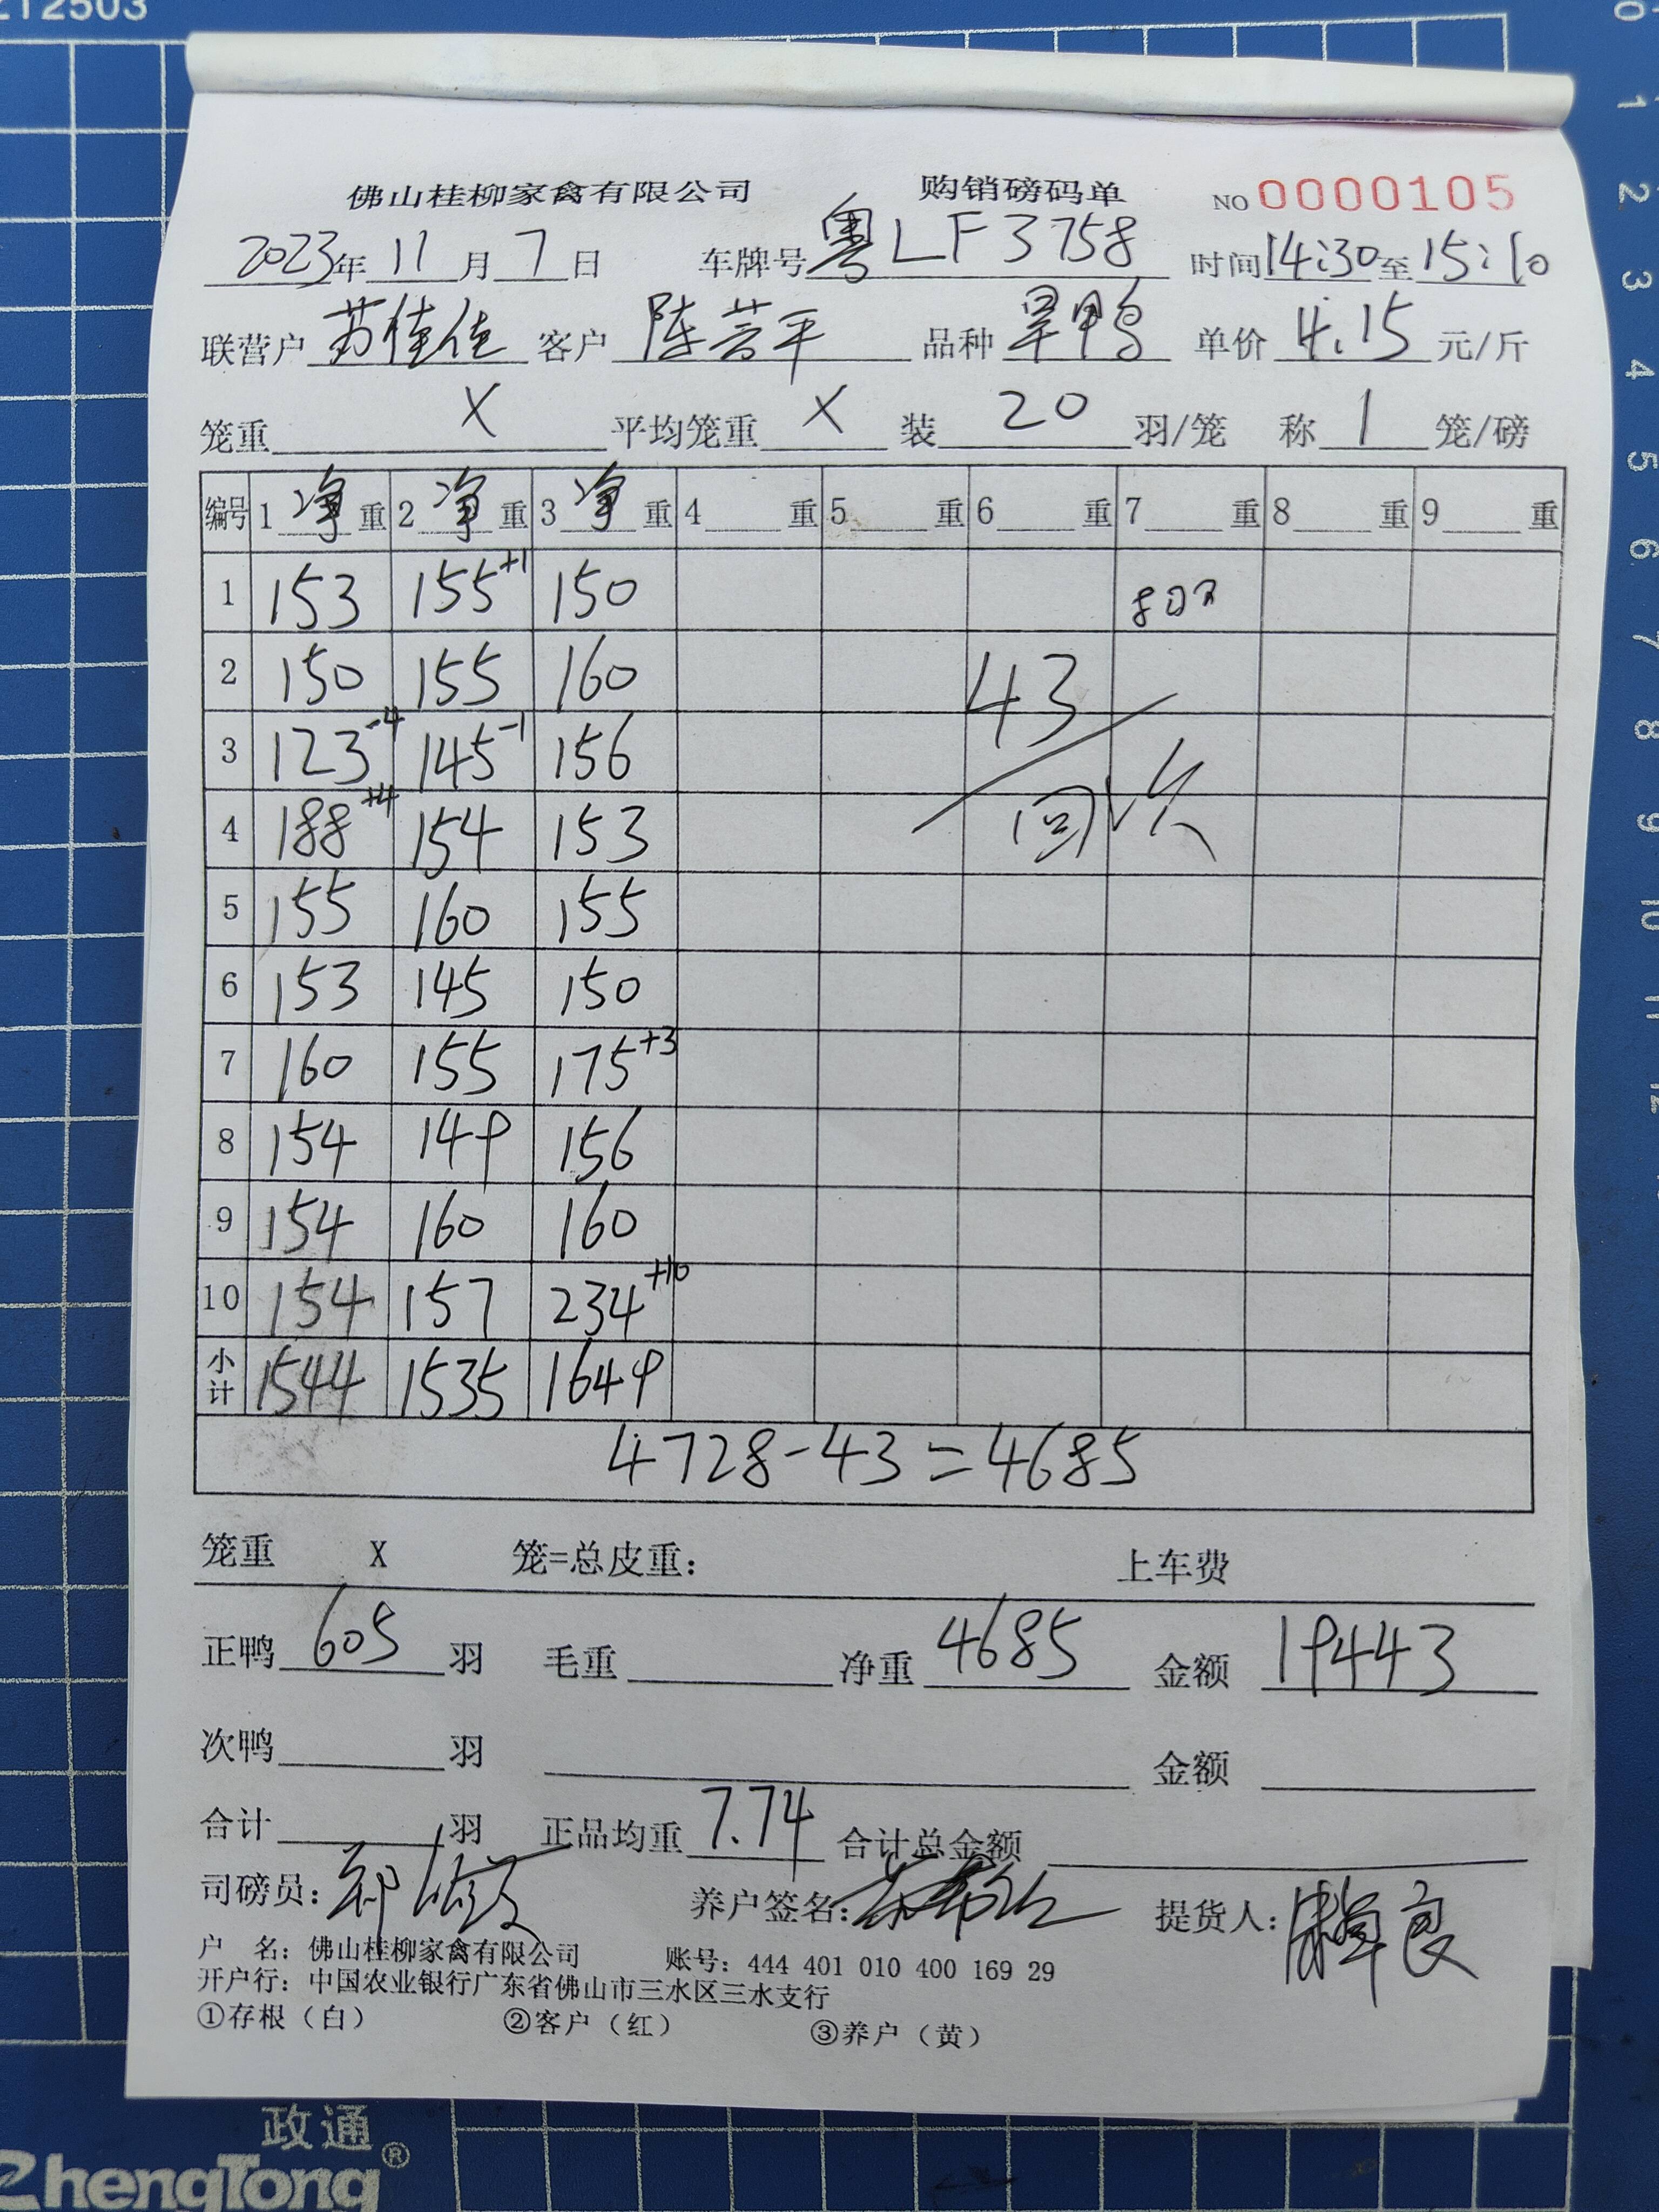 佛山桂柳家禽有限公司 购销磅码单 NO 0000105
2023年 11 月 7 日 车牌号 粤LF3758 时间 14:30 至 15:10
联营户 苏佳佳 客户 陈芸平 品种 旱鸭 单价 4.15 元/斤
笼重 X 平均笼重 X 装 20 羽/笼 称 1 笼/磅
编号 1 净 重 2 净 重 3 净 重 4 重 5 重 6 重 7 重 8 重 9 重
1 153 155+1 150
2 150 155 160 43
3 123-4 145-1 156
4 188+4 154 153 回
5 155 160 155
6 153 145 150
7 160 155 175+3
8 154 149 156
9 154 160 160
10 154 157 234+10
小计 1544 1535 1649
4728-43=4685
笼重 X 笼=总皮重: 上车费
正鸭 605 羽 毛重 净重 4685 金额 19443
次鸭 羽 金额
合计 羽 正品均重 7.74 合计总金额
司磅员: 养户签名: 提货人:
户 名: 佛山桂柳家禽有限公司 账号: 444 401 010 400 169 29
开户行: 中国农业银行广东省佛山市三水区三水支行
①存根（白） ②客户（红） ③养户（黄）
政通
ZhengTong®